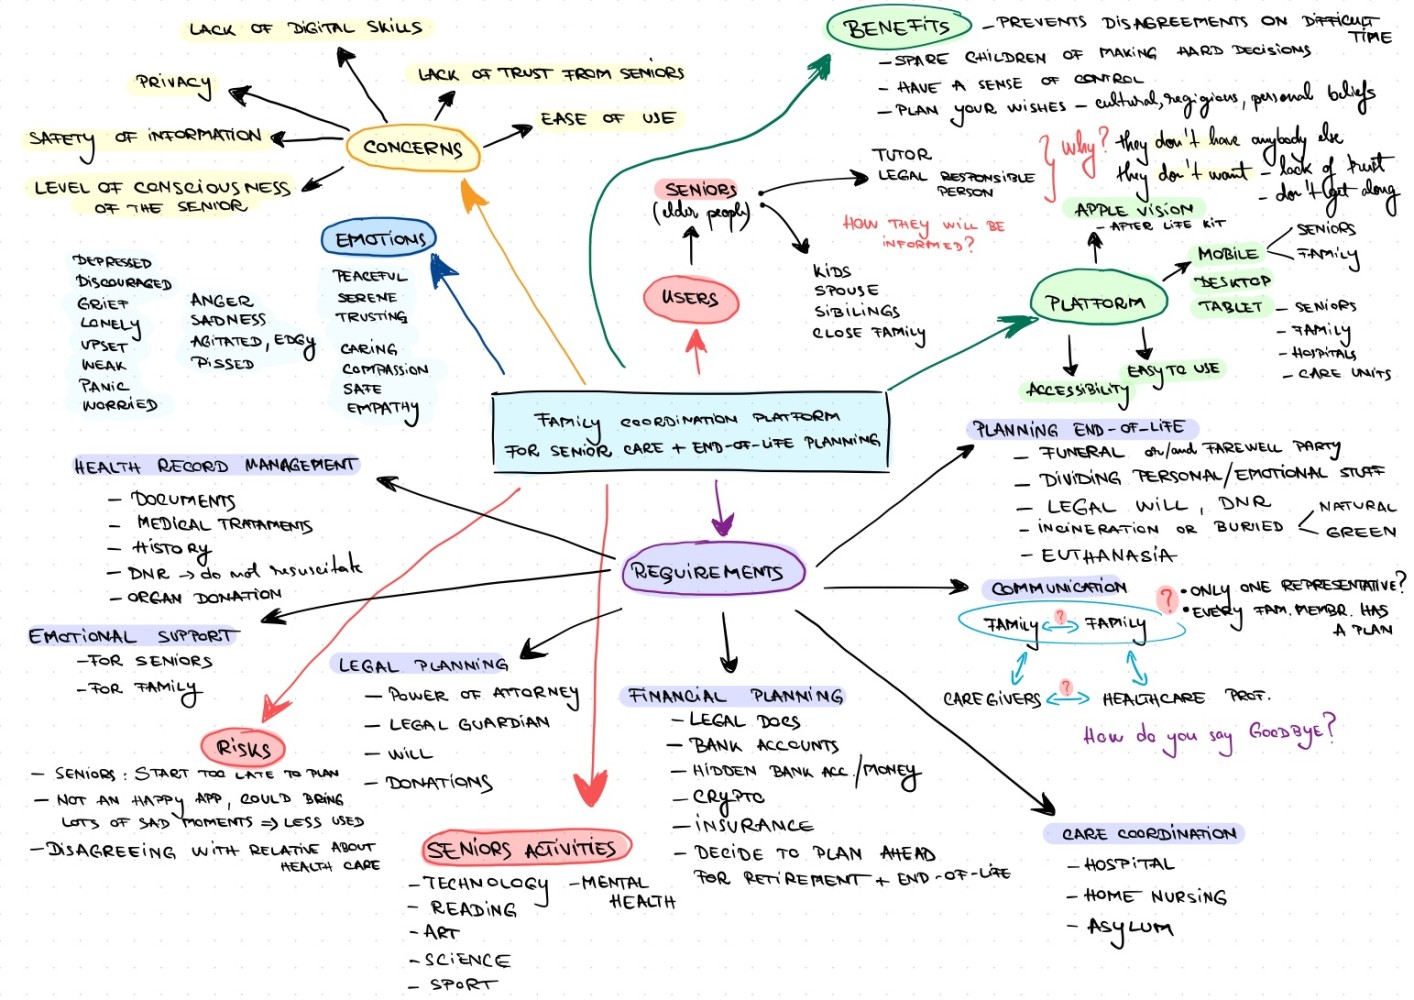 LACK OF DIGITAL SKILLS
PRIVACY
LACK OF TRUST FROM SENIORS
SAFETY OF INFORMATION
EASE OF USE
CONCERNS
LEVEL OF CONSCIOUSNESS
OF THE SENIOR
BENEFITS
- PREVENTS DISAGREEMENTS ON DIFFICULT
TIME
- SPARE CHILDREN OF MAKING HARD DECISIONS
- HAVE A SENSE OF CONTROL
- PLAN YOUR WISHES - cultural, regigious, personal beliefs
EMOTIONS
DEPRESSED
DISCOURAGED
GRIEF
LONELY
UPSET
WEAK
PANIC
WORRIED
ANGER
SADNESS
AGITATED, EDGY
PISSED
PEACEFUL
SERENE
TRUSTING
CARING
COMPASSION
SAFE
EMPATHY
SENIORS
(elder people)
USERS
TUTOR
LEGAL RESPONSIBLE
PERSON
why?
they don't have anybody else
they don't want - lack of trust
- don't get along
HOW THEY WILL BE
INFORMED?
KIDS
SPOUSE
SIBILINGS
CLOSE FAMILY
APPLE VISION
- AFTER LIFE KIT
PLATFORM
MOBILE
SENIORS
FAMILY
DESKTOP
TABLET
- SENIORS
- FAMILY
- HOSPITALS
- CARE UNITS
ACCESSIBILITY
EASY TO USE
FAMILY COORDINATION PLATFORM
FOR SENIOR CARE + END-OF-LIFE PLANNING
HEALTH RECORD MANAGEMENT
- DOCUMENTS
- MEDICAL TRATAMENTS
- HISTORY
- DNR → do not resuscitate
- ORGAN DONATION
REQUIREMENTS
PLANNING END-OF-LIFE
- FUNERAL or/and FAREWELL PARTY
- DIVIDING PERSONAL/EMOTIONAL STUFF
- LEGAL WILL, DNR
- INCINERATION OR BURIED
NATURAL
GREEN
- EUTHANASIA
COMMUNICATION
? • ONLY ONE REPRESENTATIVE?
• EVERY FAM. MEMBR. HAS
A PLAN
FAMILY ? FAMILY
CAREGIVERS ? HEALTHCARE PROF.
How do you say GOODBYE?
EMOTIONAL SUPPORT
- FOR SENIORS
- FOR FAMILY
LEGAL PLANNING
- POWER OF ATTORNEY
- LEGAL GUARDIAN
- WILL
- DONATIONS
FINANCIAL PLANNING
- LEGAL DOCS
- BANK ACCOUNTS
- HIDDEN BANK ACC./MONEY
- CRYPTO
- INSURANCE
- DECIDE TO PLAN AHEAD
FOR RETIREMENT + END-OF-LIFE
RISKS
- SENIORS: START TOO LATE TO PLAN
- NOT AN HAPPY APP, COULD BRING
LOTS OF SAD MOMENTS ⇒ LESS USED
- DISAGREEING WITH RELATIVE ABOUT
HEALTH CARE
SENIORS ACTIVITIES
- TECHNOLOGY
- READING
- ART
- SCIENCE
- SPORT
- MENTAL
HEALTH
CARE COORDINATION
- HOSPITAL
- HOME NURSING
- ASYLUM